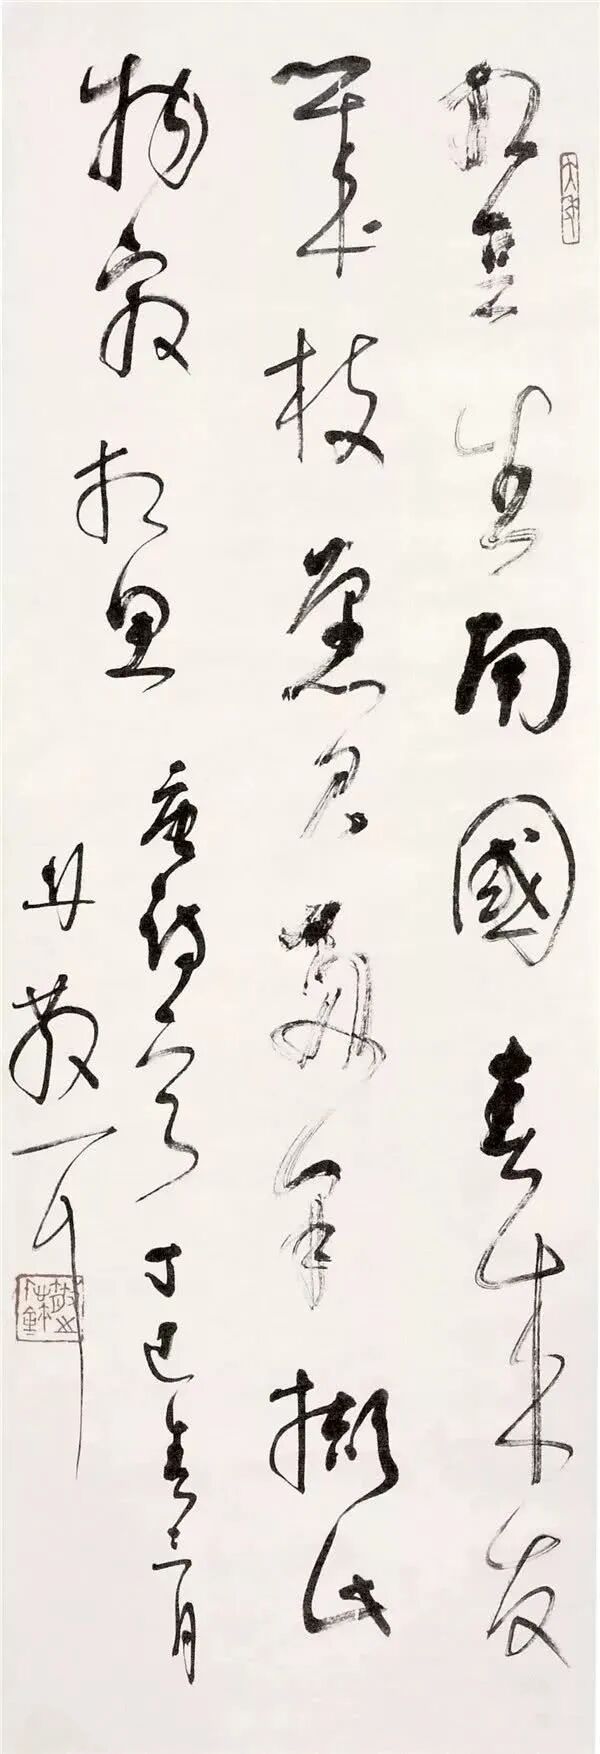 红豆生南國春来发
幾枝愿君采撷此
物最相思
唐诗一首丁巳春三月
林散耳